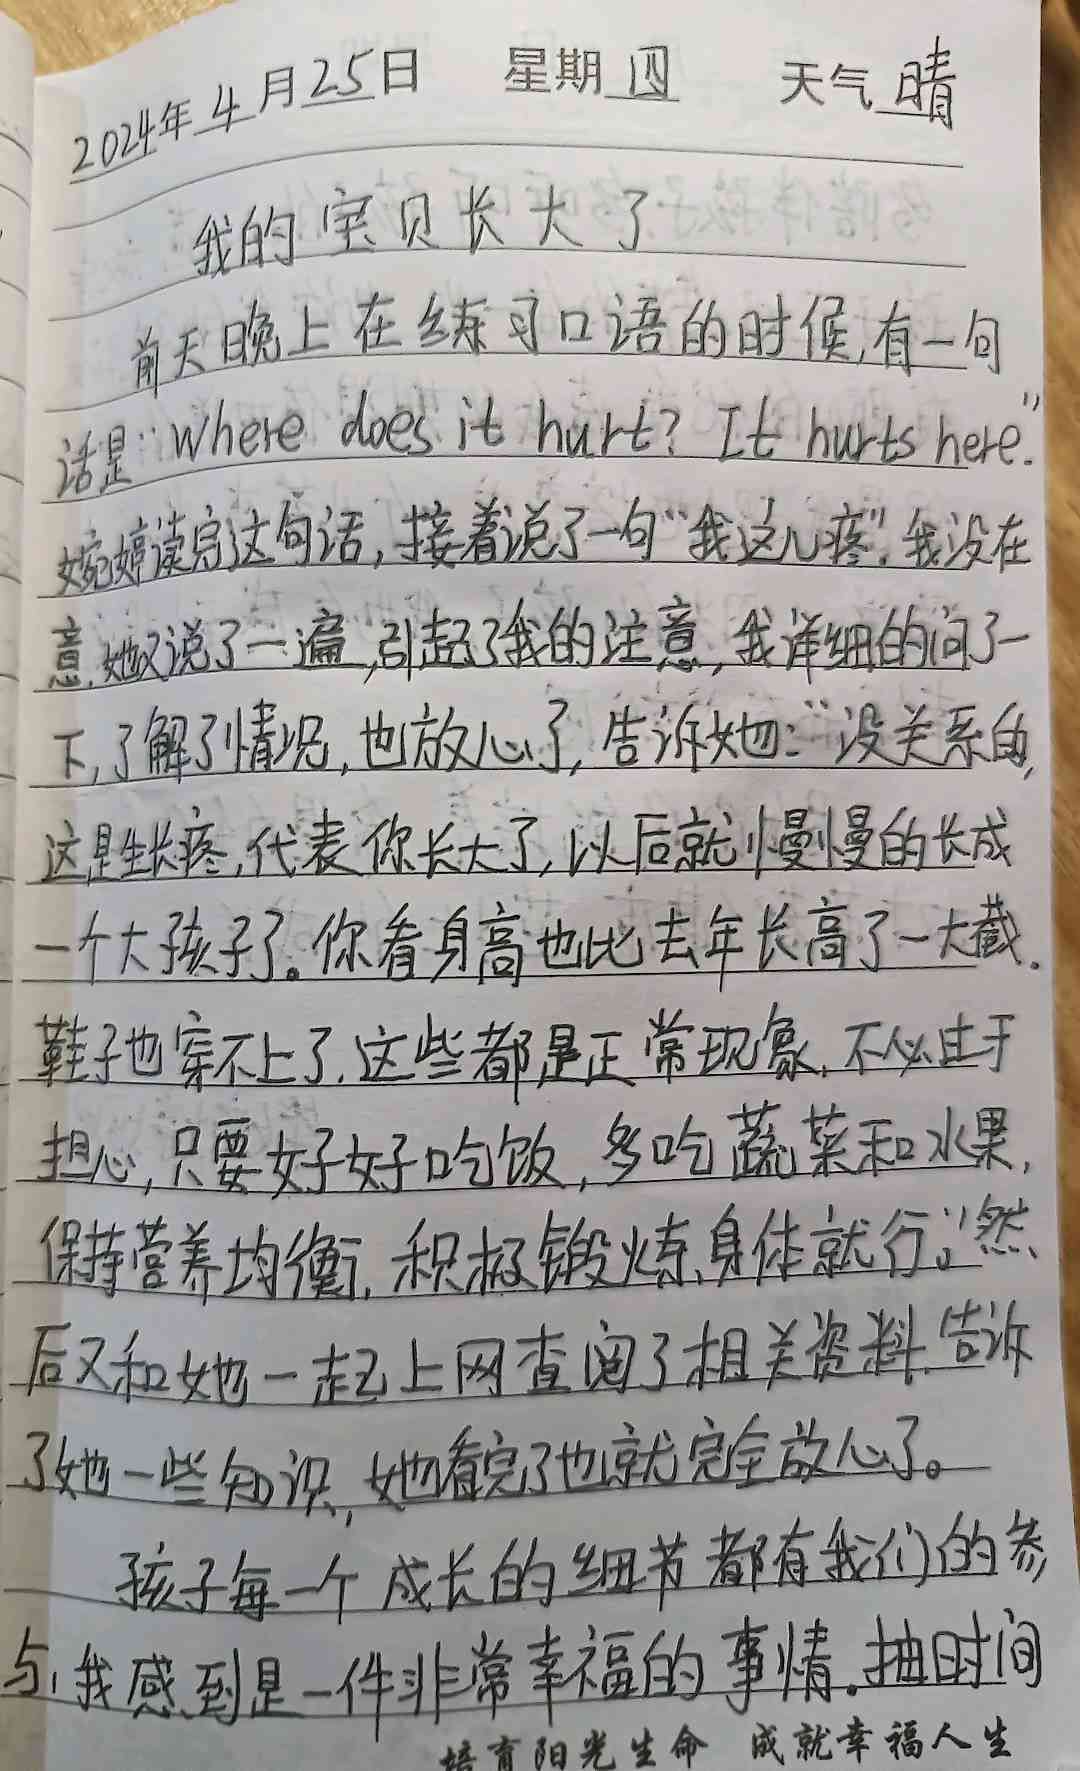 2024年4月25日 星期四 天气晴
我的宝贝长大了
前天晚上在练习口语的时候,有一句
话是:"Where does it hurt? It hurts here."
婉婷读完这句话,接着说了一句"我这儿疼",我没在
意,她又说了一遍,引起了我的注意,我详细的问了一
下,了解了情况,也放心了,告诉她:"没关系的,
这是生长疼,代表你长大了,以后就慢慢的长成
一个大孩子了。你看身高也比去年长高了一大截.
鞋子也穿不上了,这些都是正常现象,不必过于
担心,只要好好吃饭,多吃蔬菜和水果,
保持营养均衡,积极锻炼身体就行。"然
后又和她一起上网查阅了相关资料,告诉
了她一些知识,她看完了也就完全放心了。
孩子每一个成长的细节都有我们的参
与,我感到是一件非常幸福的事情.抽时间
培育阳光生命 成就幸福人生